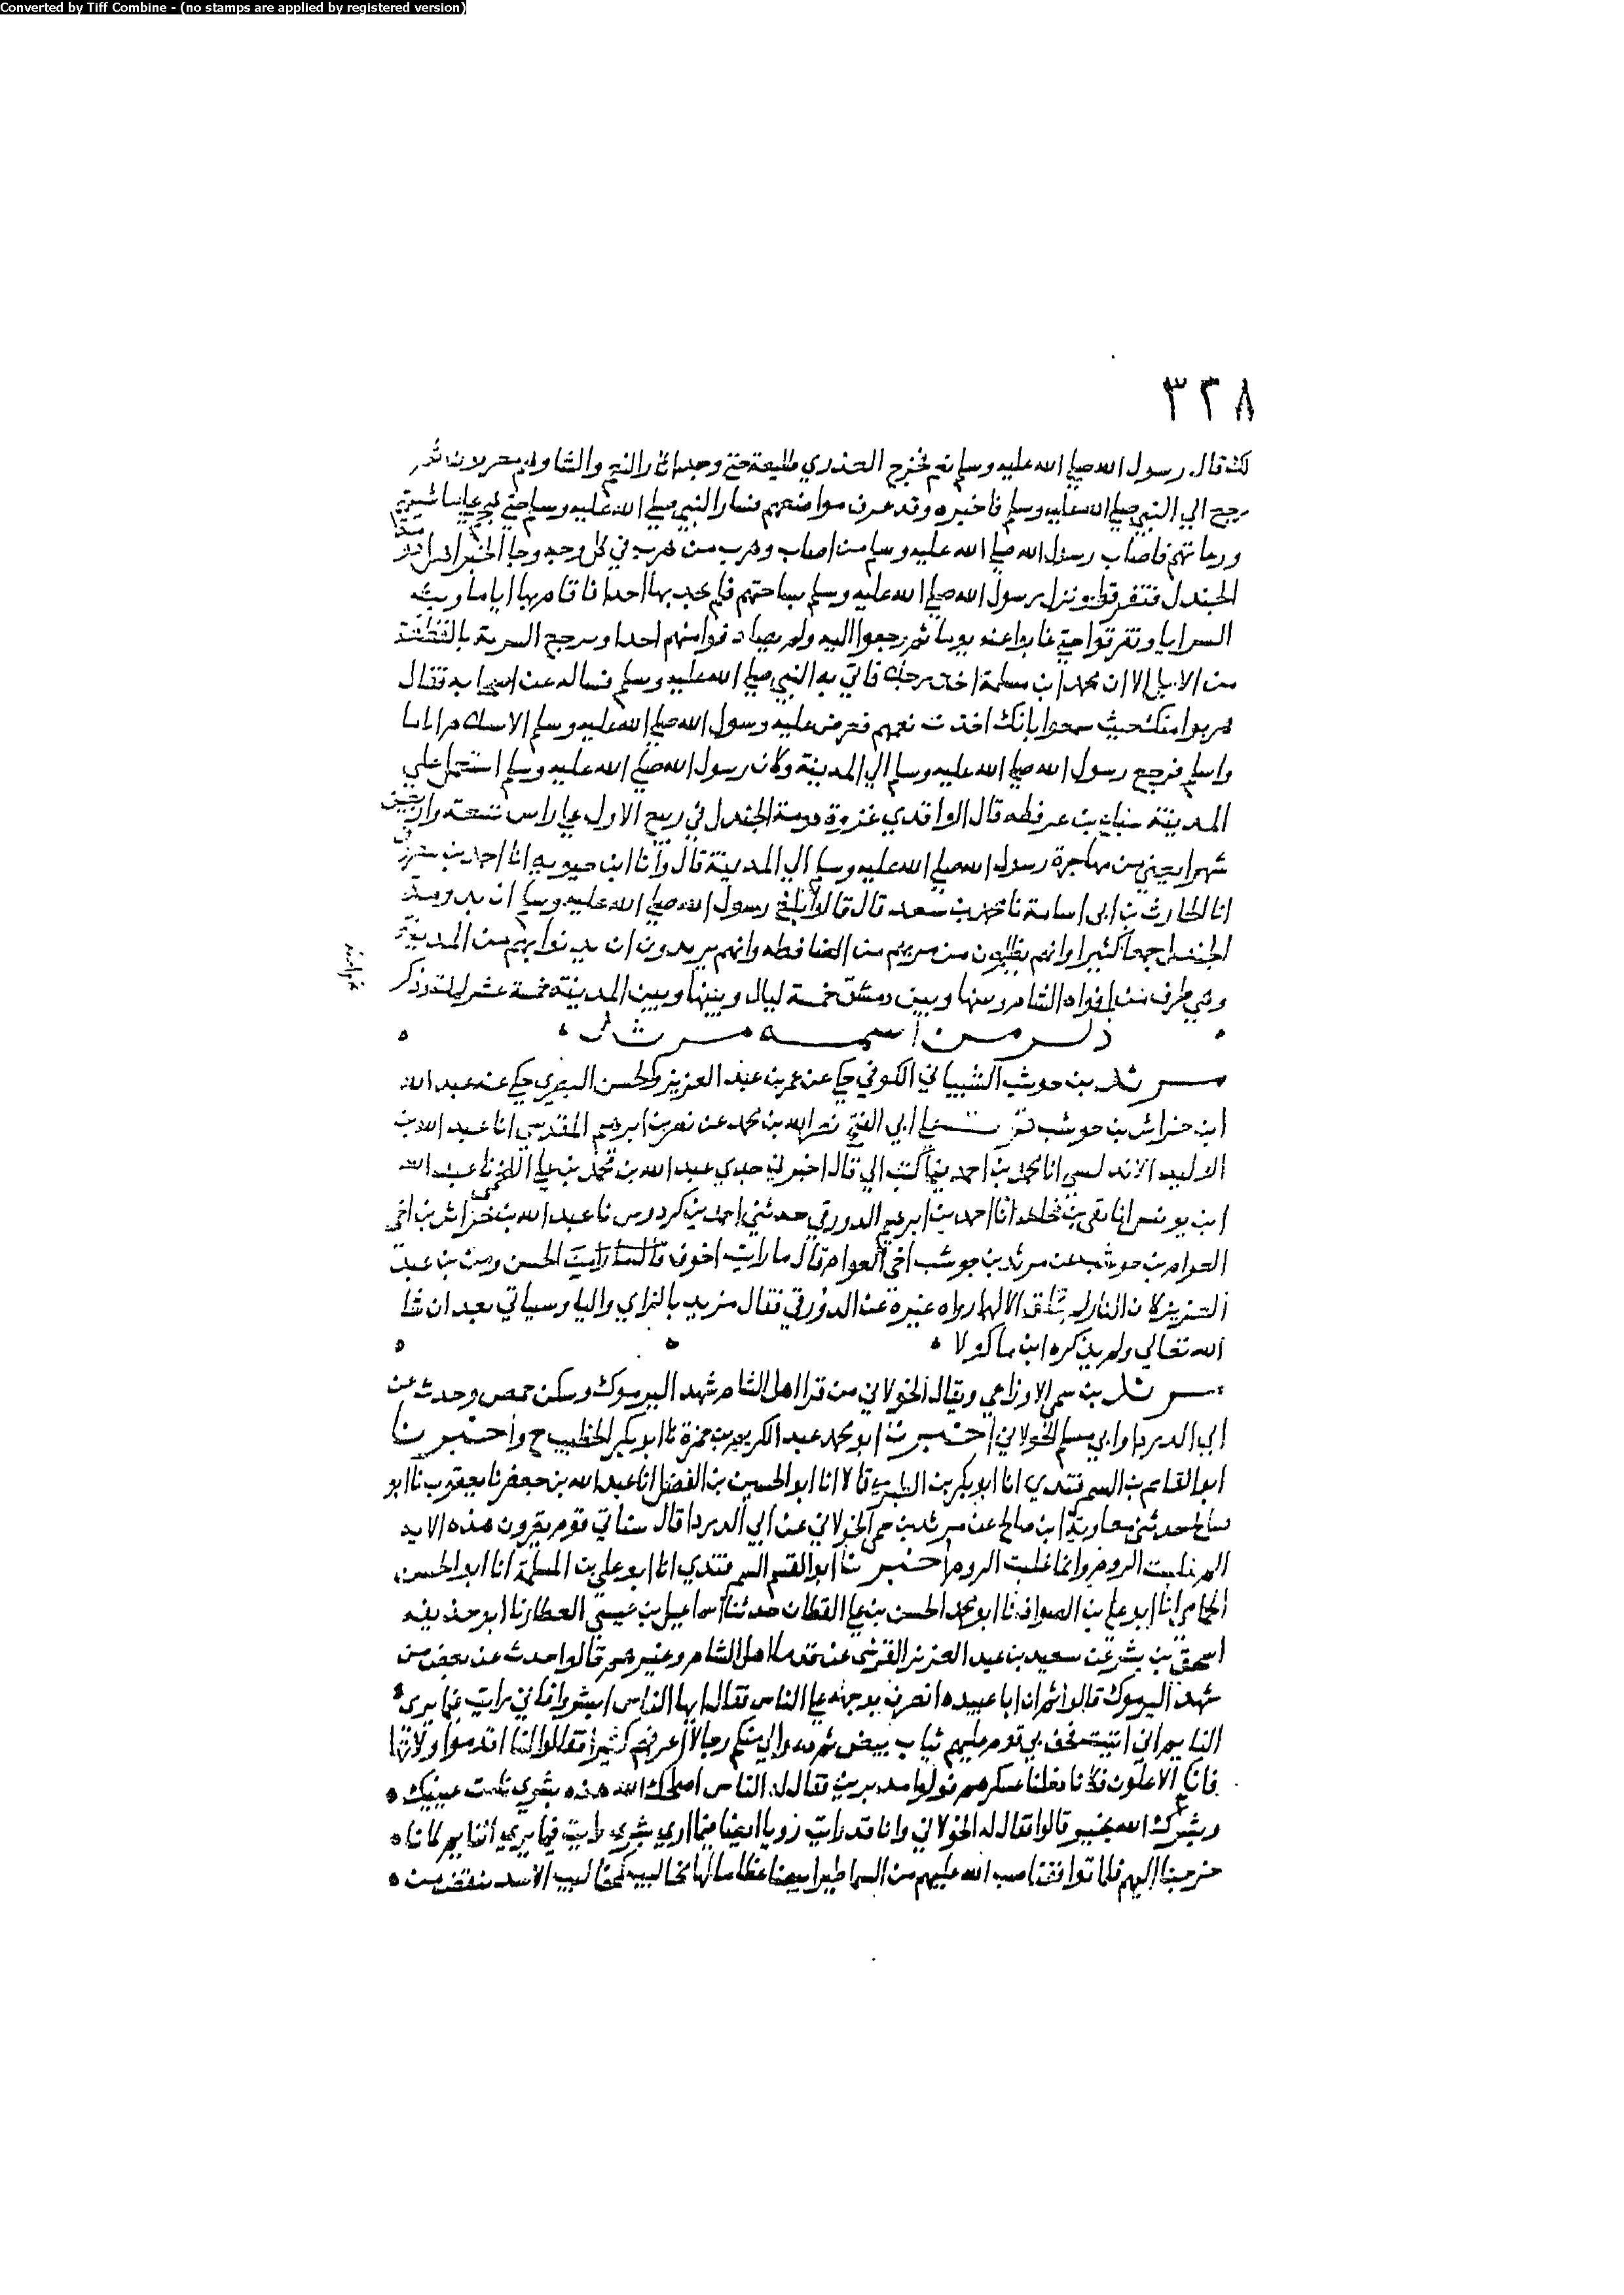 Converted by Tiff Combine - (no stamps are applied by registered version)
٣٢٨
لك قال رسول الله صلي الله عليه وسلم نعم فخرج العذري طليعة حتي وجد اثار النعم والشا وهم مغربون ثم
رجع الي النبي صلي الله عليه وسلم فاخبره وقد عرف مواضعهم فسار النبي صلي الله عليه وسلم حتي هجم علي ماشيتهم
ورعاتهم فاصاب رسول الله صلي الله عليه وسلم من اصاب وهرب من هرب في كل وجه وجا الخبر اهل دومة
الجندل فتفرقوا ونزل رسول الله صلي الله عليه وسلم بساحتهم فلم يجد بها احدا فاقام بها اياما وبث
السرايا وتفرقوا حتي غابوا عنه يوما ثم رجعوا اليه ولم يصادفوا منهم احدا وترجع السرية بالقطعة
من الابل الا ان محمد ابن مسلمة اخذ رجلا فاتي به النبي صلي الله عليه وسلم فساله عن اصحابه فقال
هربوا منك حيث سمعوا بانك اخذت نعمهم فعرض عليه رسول الله صلي الله عليه وسلم الاسلام اياما
واسلم فرجع رسول الله صلي الله عليه وسلم الي المدينة وكان رسول الله صلي الله عليه وسلم استعمل علي
المدينة سباع بن عرفطه قال الواقدي غزوة دومة الجندل في ربيع الاول علي راس تسعة واربعين
شهرا يعني من مهاجرة رسول الله صلي الله عليه وسلم الي المدينة قال وانا ابن حيويه انا احمد بن معروف
انا الحارث بن ابي اسامة نا محمد بن سعد قال قالوا بلغ رسول الله صلي الله عليه وسلم ان بدومة
الجندل جمعا كثيرا وانهم يظلمون من مر بهم من الضافطه وانهم يريدون ان يدنوا بهم من المدينة
وهي طرف من افواه الشام وبينها وبين دمشق خمسة ليال وبينها وبين المدينة خمسة عشر ليلة وذكر
ذكر من اسمه مرثد
مرثد بن حوشب الشيباني الكوفي حكي عن عمر بن عبد العزيز والحسن البصري حكي عنه عبد الله
ابن خراش بن حوشب قرات علي ابي الفتح نصر الله بن محمد عن نصر بن ابرهيم المقدسي انا عبد الله بن
الوليد الاندلسي انا محمد بن احمد فيما كتب الي قال اخبرني جدي عبد الله بن محمد بن علي اللخمي نا عبد الله
ابن يونس انا بقي بن مخلد انا احمد بن ابرهيم الدورقي حدثني احمد بن كردوس نا عبد الله بن خراش بن اخي
العوام بن حوشب عن مرثد بن حوشب اخي العوام قال ما رايت اخوف قال ما رايت الحسن وعمر بن عبد
العزيز كان النار لم تخلق الا لهما رواه غيره عن الدورقي فقال مزيد بالزاي واليا وسياتي بعد ان شا
الله تعالي ولم يذكره ابن ماكولا
مرثد بن سمي الاوزاعي ويقال الخولاني من قرا اهل الشام شهد اليرموك وسكن حمص وحدث عن
ابي الدردا وابي مسلم الخولاني اخبرنا ابو محمد عبد الكريم بن حمزة نا ابو بكر الخطيب ح واخبرنا
ابو القاسم بن السمرقندي انا ابو بكر بن الطبري قالا انا ابو الحسين بن الفضل انا عبد الله بن جعفر نا يعقوب نا ابو
صالح حدثني معاوية ابن صالح عن مرثد بن سمي الخولاني عن ابي الدردا قال سياتي قوم يقرون هذه الاية
الم غلبت الروم وانما غلبت الروم اخبرنا ابو القسم السمرقندي انا ابو علي بن المسلمة انا ابو الحسن
الحمامي انا ابو علي بن الصواف نا ابو محمد الحسن بن علي القطان حدثنا اسماعيل بن عيسي العطار نا ابو حذيفه
اسحق بن بشر عن سعيد بن عبد العزيز القرشي عن قدما اهل الشام وغيرهم قالوا حدث عن بعض من
شهد اليرموك قالوا ثم ان ابا عبيده انصرف بوجهه علي الناس فقال ايها الناس ابشروا فاني رايت فيما يري
النايم اني اتيت فحف بي قوم عليهم ثياب بيض ثم دعوا لي منكم رجالا اعرفهم كثيرا فقالوا لنا اقدموا ولا تهابوا
فانكم الاعلون فكانا دخلنا عسكرهم فولوا مدبرين فقال له الناس اصلحك الله هذه بشري نامت عينيك
وبشرك الله بخير قالوا فقال له الخولاني وانا قد رايت رويا ايضا فيما اري بشري رايت فيما يري النايم كانا
خرجنا اليهم فلما تواقفنا صب الله عليهم من السما طيرا بيضا عظاما لها مخاليب كمخاليب الاسد تنقض من